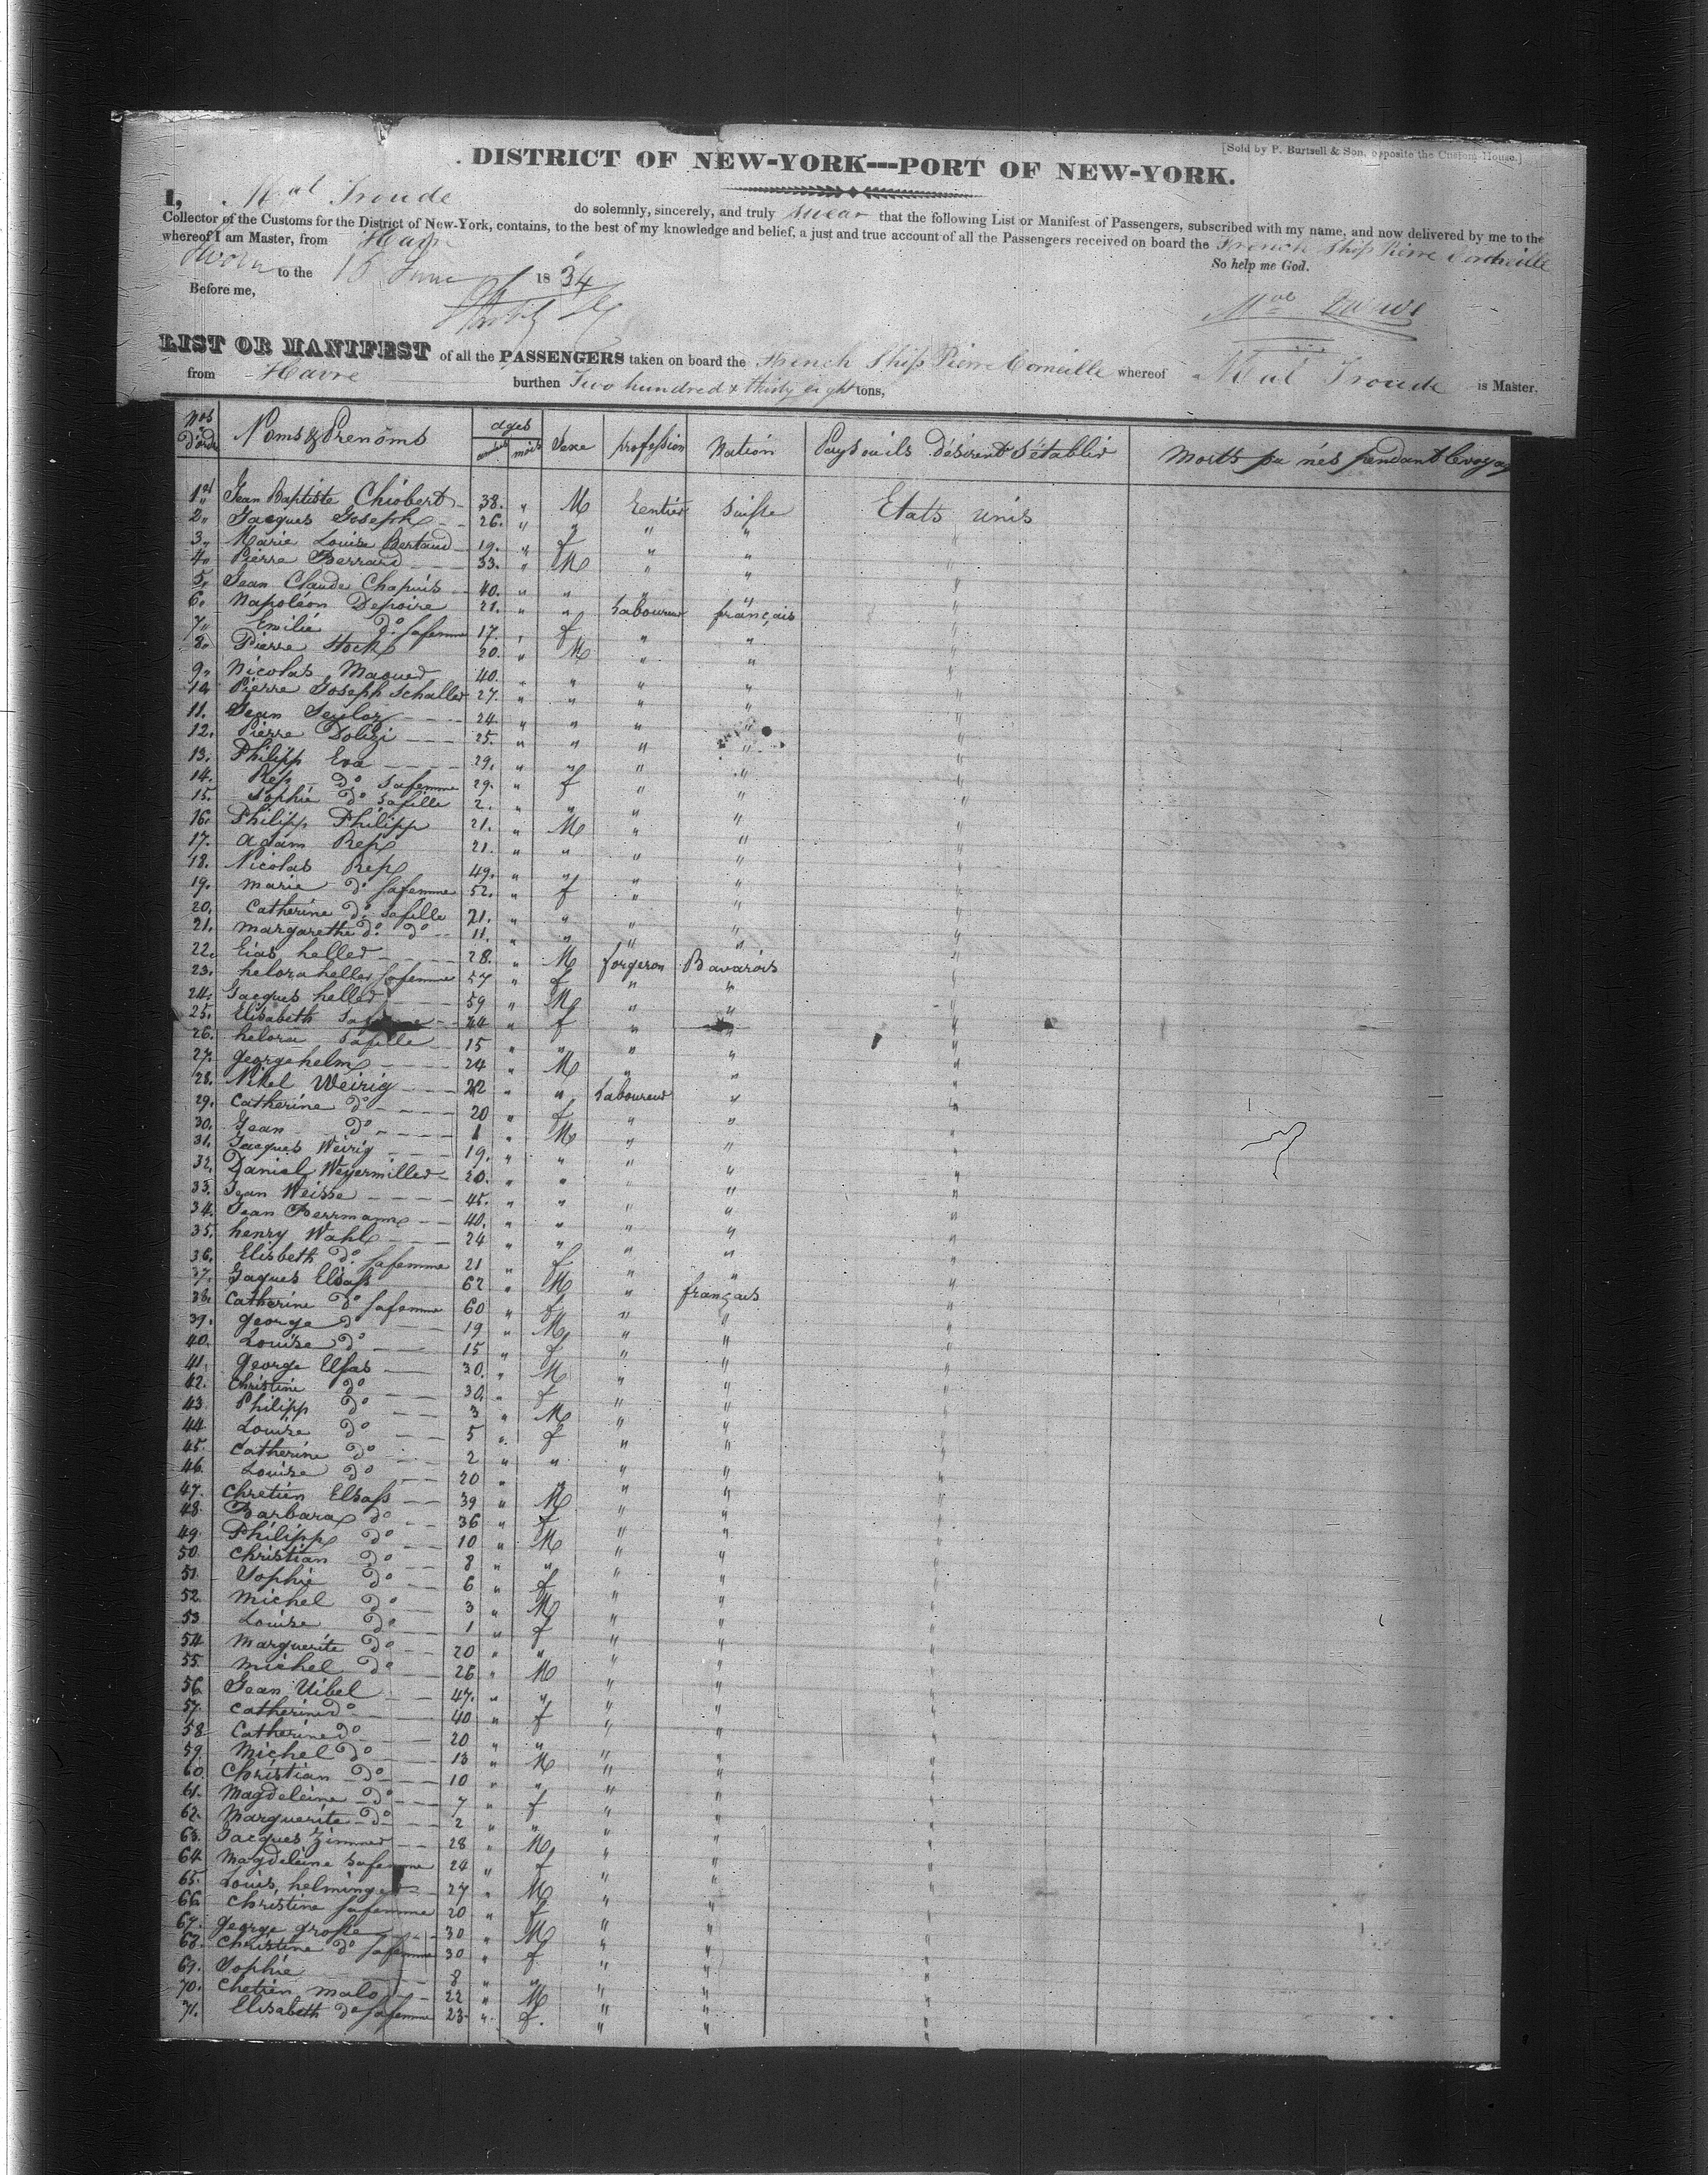 [Sold by P. Burtsell & Son, opposite the Custom-House.]
DISTRICT OF NEW-YORK---PORT OF NEW-YORK.
I, Mal Troude do solemnly, sincerely, and truly swear that the following List or Manifest of Passengers, subscribed with my name, and now delivered by me to the
Collector of the Customs for the District of New-York, contains, to the best of my knowledge and belief, a just and true account of all the Passengers received on board the French Ship Pierre Corneille
whereof I am Master, from Havre
So help me God.
Sworn to the 16 June 1834
Before me,
LIST OR MANIFEST of all the PASSENGERS taken on board the French Ship Pierre Corneille whereof Mal Troude is Master.
from Havre burthen Two hundred & thirty eight tons,
Nos d'ordre Noms & Prenoms ages années mois Sexe profession Nation Pays ou ils désirent s'établir Morts ou nés pendant le voyage
1er Jean Baptiste Chiobert 38. " M Rentier Suisse Etats unis
2. Jacques Joseph 26. " " " " "
3. Marie Louise Bertaud 19. " f " " "
4. Pierre Berrard 33. " M " " "
5. Jean Claude Chapuis 40. " " " " "
6. Napoléon Depoire 21. " " Laboureur français "
7. Emilie do sa femme 17. " f " " "
8. Pierre Stock 20. " M " " "
9. Nicolas Maoued 40. " " " " "
10. Pierre Joseph Schaller 27. " " " " "
11. Jean 24. " " " " "
12. Pierre Dolizi 25. " " " " "
13. Philipp Eva 29. " " " " "
14. do sa femme 29. " f " " "
15. Sophie do sa fille 2. " " " " "
16. Philipp Philipp 21. " M " " "
17. adam Rep 21. " " " " "
18. Nicolas Rep 49. " " " " "
19. marie do sa femme 52. " f " " "
20. Catherine do sa fille 21. " " " " "
21. margarethe do do 11. " " " " "
22. Eias heller 28. " M forgeron Bavarois "
23. helora heller sa femme 57 " f " " "
24. Jacques heller 59 " M " " "
25. Elisabeth 44 " f " " "
26. helora sa fille 15 " " " " "
27. george helm 24 " M " " "
28. Nikel Weirig 22 " " Laboureur " "
29. Catherine do 20 " f " " "
30. Jean do 1 " M " " "
31. Jacques Weirig 19. " " " " "
32. Daniel Weyermiller 20. " " " " "
33. Jean Weisse 45. " " " " "
34. Jean Berrmann 40. " " " " "
35. henry Wahl 24 " " " " "
36. Elisbeth do sa femme 21 " f " " "
37. Jaques Elsass 62 " M " français "
38. Catherine do sa femme 60 " f " " "
39. george do 19 " M " " "
40. Louise do 15 " f " " "
41. george Elsas 30. " M " " "
42. Christine do 30. " f " " "
43. Philipp do 3 " M " " "
44. Louise do 5 " f " " "
45. Catherine do 2 " " " " "
46. Louise do 20 " " " " "
47. Chretien Elsass 39 " M " " "
48. Barbara do 36 " f " " "
49. Philipp do 10 " M " " "
50. Christian do 8 " " " " "
51. Sophie do 6 " f " " "
52. michel do 3 " M " " "
53. Louise do 1 " f " " "
54. marguerite do 20 " " " " "
55. michel do 26 " M " " "
56. Jean Uibel 47. " " " " "
57. Catherine do 40 " f " " "
58. Catherine do 20 " " " " "
59. Michel do 13 " M " " "
60. Christian do 10 " " " " "
61. Magdeleine do 7 " f " " "
62. Marguerite do 2 " " " " "
63. Jacques Zimmer 28 " M " " "
64. Magdeleine sa femme 24 " f " " "
65. Louis helminger 27 " M " " "
66. Christine sa femme 20 " f " " "
67. george grosse 30 " M " " "
68. Christine do sa femme 30 " f " " "
69. Sophie 8 " " " " "
70. Chetien malo 22 " M " " "
71. Elisabeth do sa femme 23. " f. " " "